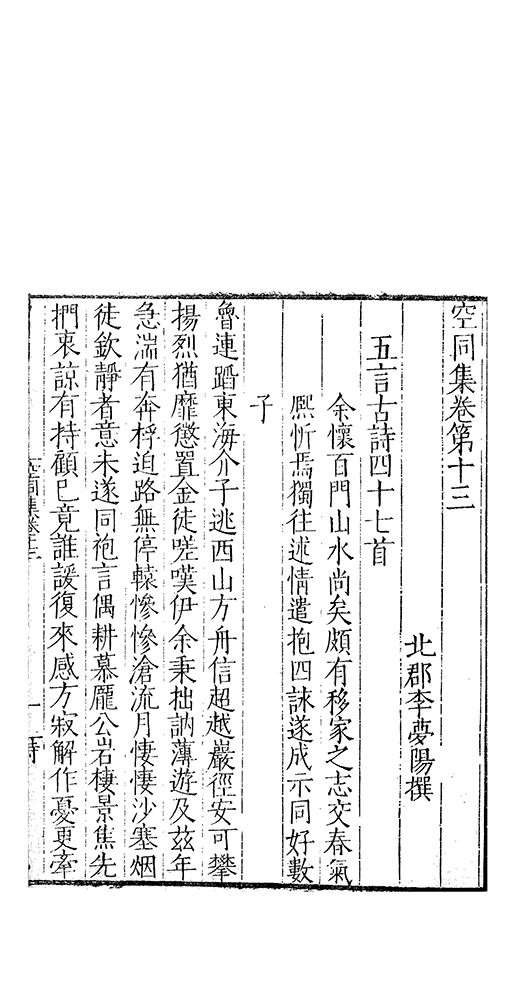 空同集卷第十三
北郡李夢陽撰
五言古詩四十七首
余懷百門山水尚矣頗有移家之志交春氣
熈忻焉獨往述情遣抱四詠遂成示同好數
子
魯連蹈東海介子逃西山方舟信超越巖徑安可攀
揚烈猶靡懲置金徒嗟嘆伊余秉拙訥薄遊及茲年
急湍有奔桴迫路無停轅慘慘滄流月悽悽沙塞烟
徒欽靜者意未遂同袍言偶耕慕龐公岩棲景焦先
捫衷諒有持顧已竟誰諼復來感方寂解作憂更牽